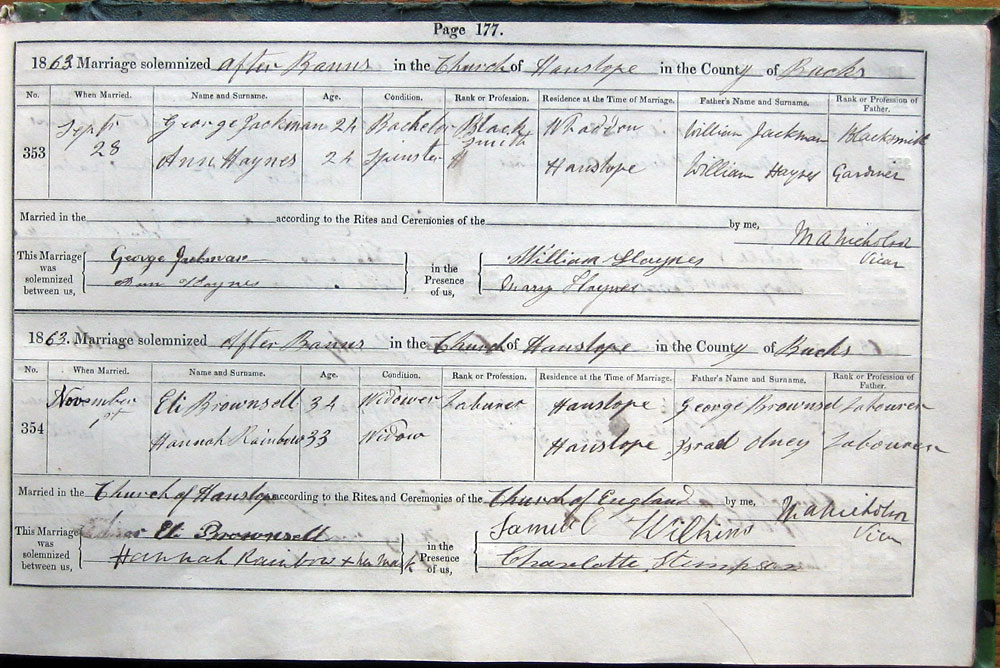 Page 177.
1863. Marriage solemnized after Banns in the Church of Hanslope in the County of Bucks
No. When Married. Name and Surname. Age. Condition. Rank or Profession. Residence at the Time of Marriage. Father's Name and Surname. Rank or Profession of Father.
353 Septr 28 George Jackman 24 Bachelor Black Smith Whaddon William Jackman Blacksmith
Ann Haynes 24 Spinster Hanslope William Haynes Gardiner
Married in the according to the Rites and Ceremonies of the by me,
M A Nicholson Vicar
This Marriage was solemnized between us, George Jackman in the Presence of us, William Haynes
Ann Haynes Mary Haynes
1863. Marriage solemnized after Banns in the Church of Hanslope in the County of Bucks
No. When Married. Name and Surname. Age. Condition. Rank or Profession. Residence at the Time of Marriage. Father's Name and Surname. Rank or Profession of Father.
354 November Eli Brownsell 34 Widower Labourer Hanslope George Brownsel Labourer
Hannah Rainbow 33 Widow Hanslope Israel Olney Labourer
Married in the Church of Hanslope according to the Rites and Ceremonies of the Church of England by me, M A Nicholson Vicar
This Marriage was solemnized between us, Eli Brownsell in the Presence of us, Samuel Wilkins
Hannah Rainbow x her Mark Charlotte Stimpson